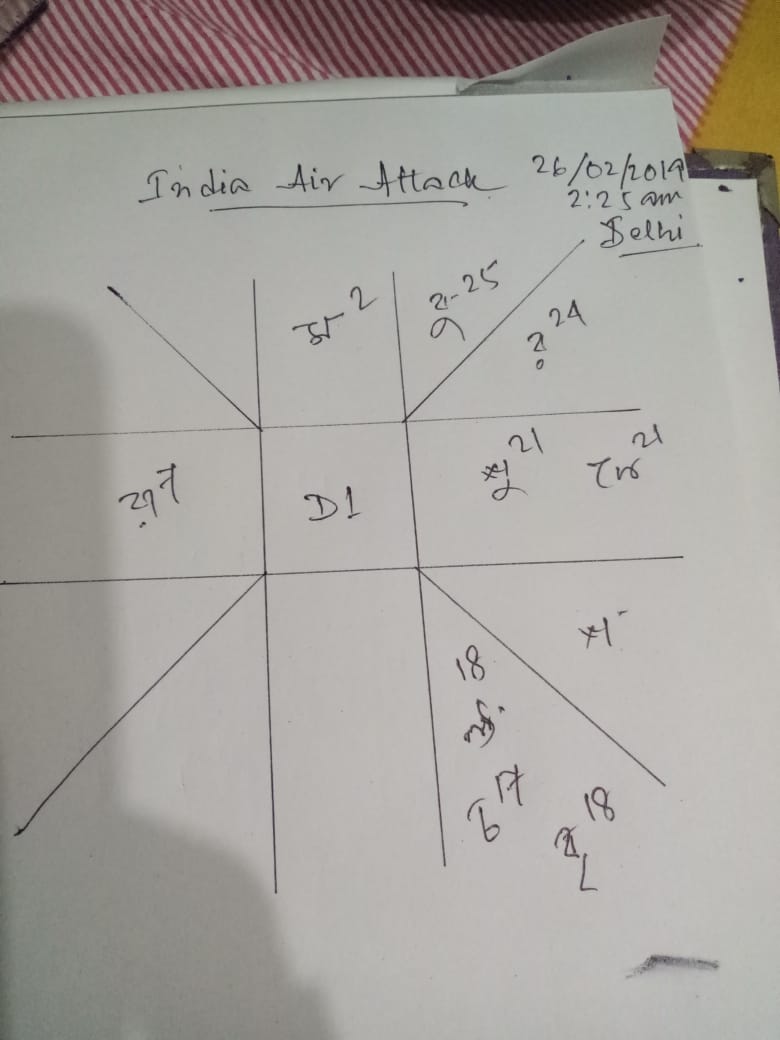 India Air Attack
26/02/2019
2:25 am
Delhi
ম 2
বু-25
র 24
রা 7
D1
শু 21
কে 21
18
17
18